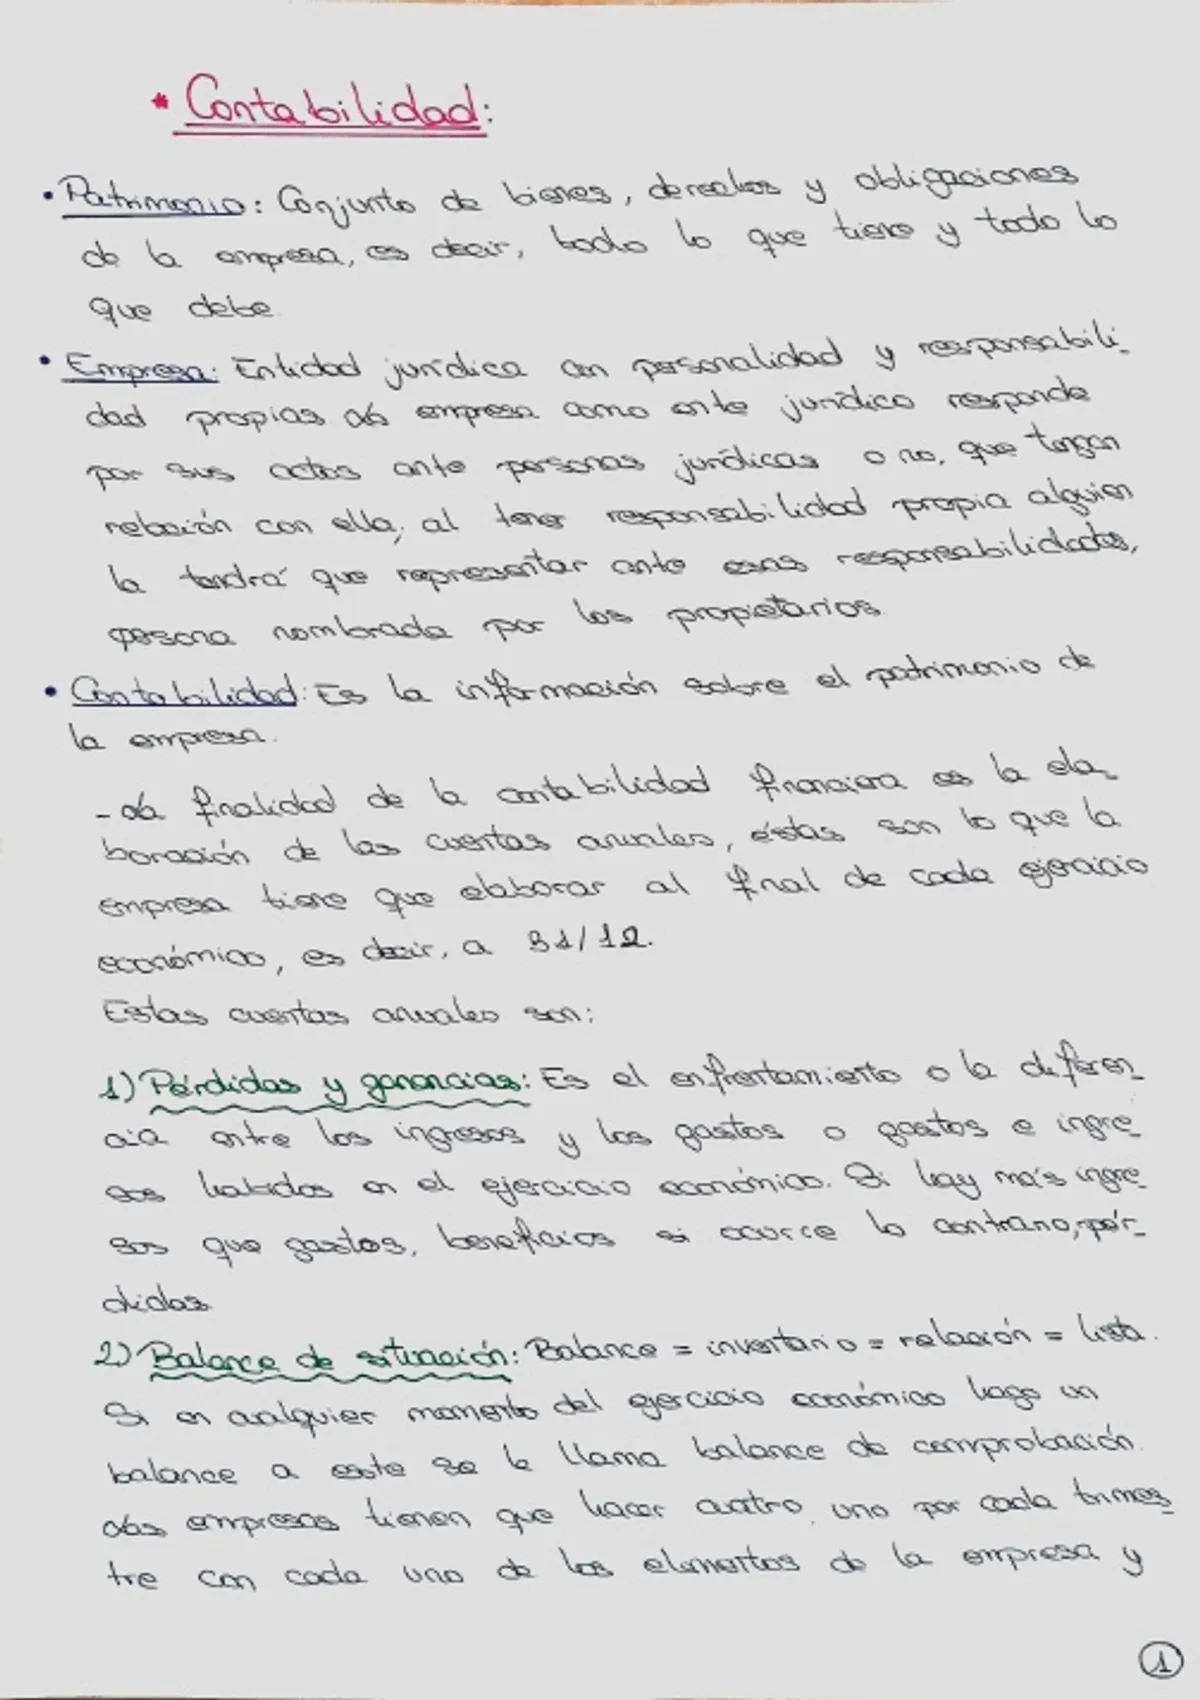 * Contabilidad:
• Patrimonio: Conjunto de bienes, derechos y obligaciones
de la empresa, es decir, todo lo que tiene y todo lo
que debe.
• Empresa: Entidad jurídica con personalidad y responsabili-
dad propias. La empresa como ente jurídico responde
por sus actos ante personas jurídicas o no, que tengan
relación con ella; al tener responsabilidad propia alguien
la tendrá que representar ante esas responsabilidades,
persona nombrada por los propietarios.
• Contabilidad: Es la información sobre el patrimonio de
la empresa.
- La finalidad de la contabilidad financiera es la ela-
boración de las cuentas anuales, éstas son lo que la
empresa tiene que elaborar al final de cada ejercicio
económico, es decir, a 31/12.
Estas cuentas anuales son:
1) Pérdidas y ganancias: Es el enfrentamiento o la diferen-
cia entre los ingresos y los gastos o gastos e ingre-
sos habidos en el ejercicio económico. Si hay más ingre-
sos que gastos, beneficios si ocurre lo contrario, pér-
didas
2) Balance de situación: Balance = inventario = relación = lista.
Si en cualquier momento del ejercicio económico hago un
balance a este se le llama balance de comprobación.
Las empresas tienen que hacer cuatro, uno por cada trimes-
tre con cada uno de los elementos de la empresa y
1